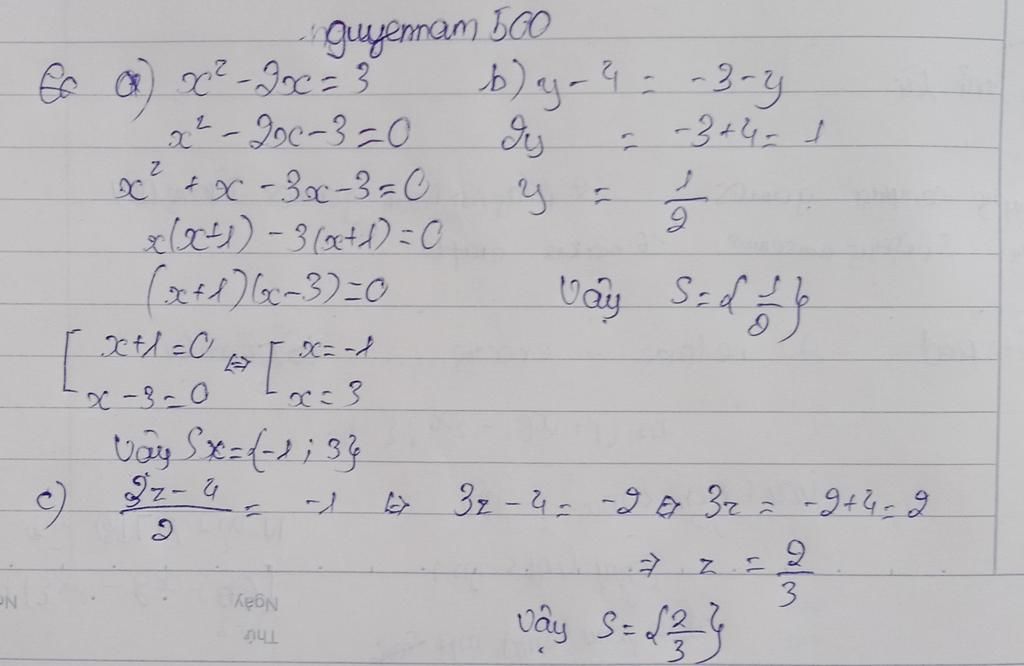 nguyennam 500
a) x² - 2x = 3
x² - 2x - 3 = 0
x² + x - 3x - 3 = 0
x(x+1) - 3(x+1) = 0
(x+1)(x-3) = 0
[ x+1 = 0 ⇔ [ x = -1
x - 3 = 0 x = 3
Vậy Sx = {-1 ; 3}
b) y - 4 = -3 - y
2y = -3 + 4 = 1
y = 1/2
Vậy S = {1/2}
c) (3z - 4)/2 = -1 ⇔ 3z - 4 = -2 ⇔ 3z = -2 + 4 = 2
⇒ z = 2/3
Vậy S = {2/3}
Ngày
Thứ